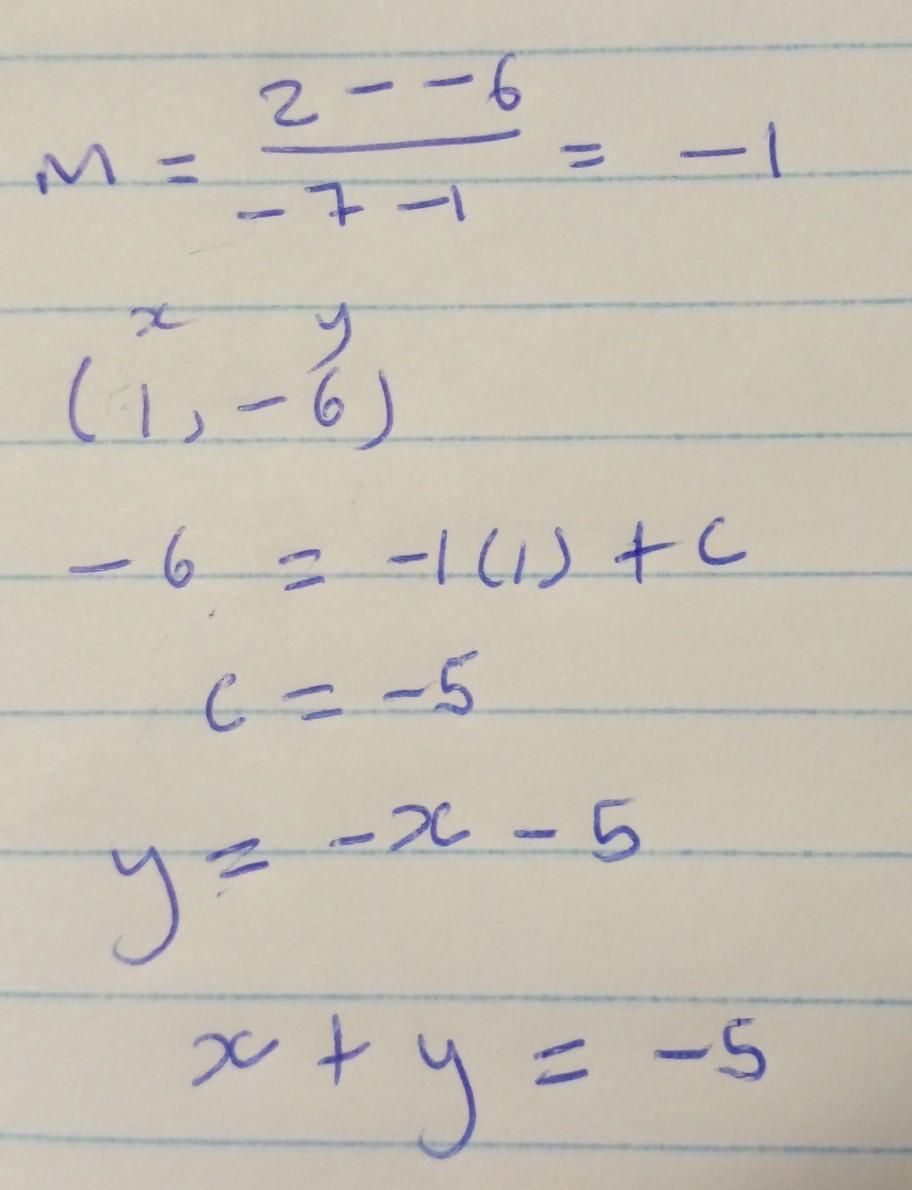 M = 2 - - 6 / -7 -1 = -1
x y
(1, -6)
-6 = -1(1) + c
c = -5
y = -x - 5
x + y = -5